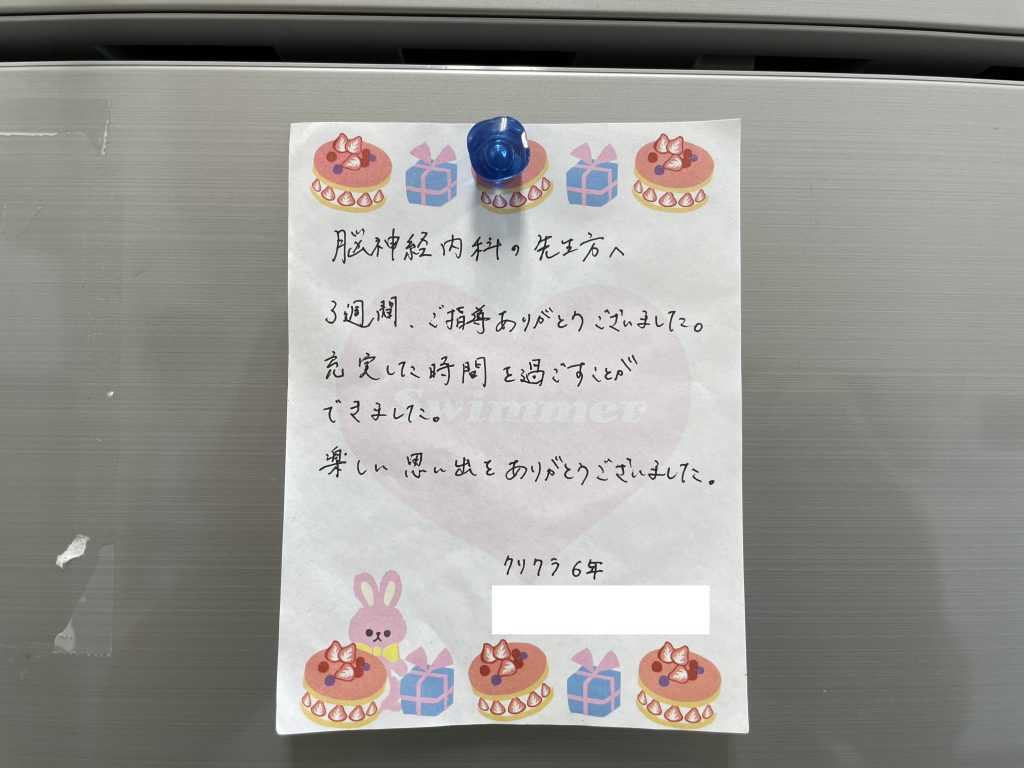 脳神経内科の先生方へ
3週間、ご指導ありがとうございました。
充実した時間を過ごすことが
できました。
Swimmer
楽しい思い出をありがとうございました。
クリクラ6年